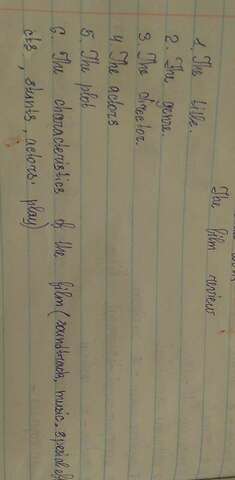 The film review
1. The title.
2. The genre.
3. The director.
4 The actors
5. The plot
6. The characteristics of the film (soundtrack, music, special effe
cts, stunts, actors' play)